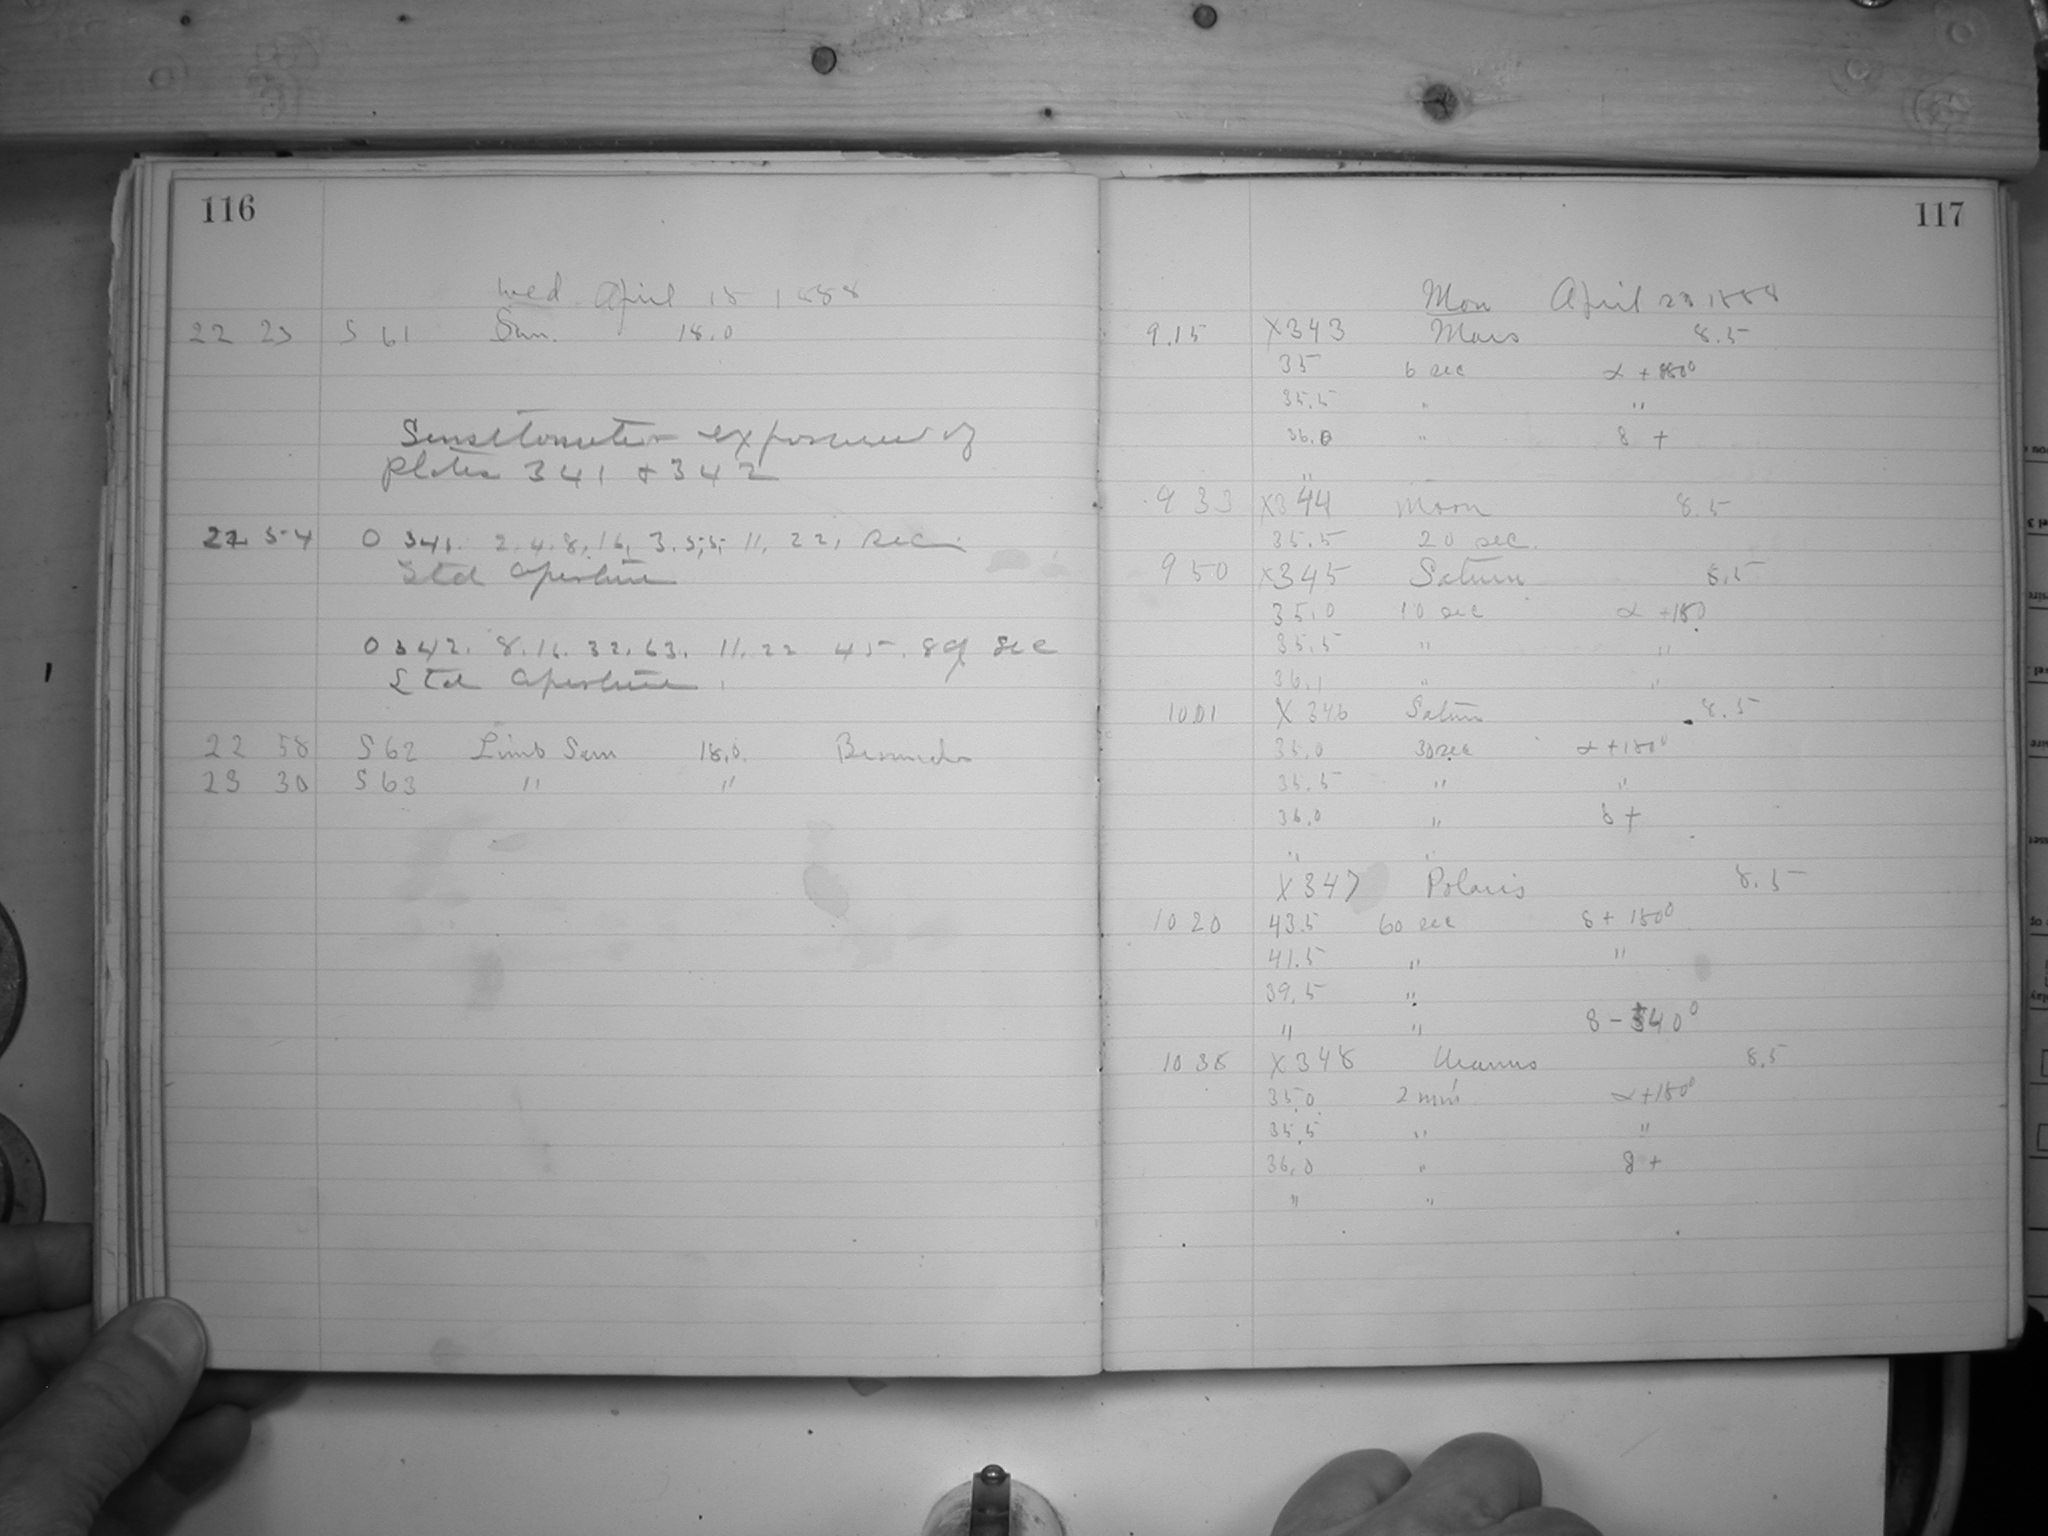 116
Wed April 18 1888
22 23 S 61 Sun. 18.0
Sensitometer exposures of
plates 341 & 342
22 54 O 341. 2. 4. 8. 16, 3. 5.5, 11, 22, sec.
Std Aperture
O 342. 8. 16. 32. 63. 11. 22 45. 89 sec
Std Aperture
22 58 S 62 Limb Sun 18.0.
23 30 S 63 " "
117
Mon April 23 1888
9.15 X343 Mars 8.5
35 6 sec α + 180°
35.5 " "
36.0 " 8 +
"
9 33 X344 Moon 8.5
35.5 20 sec.
9 50 X345 Saturn 8.5
35.0 10 sec α +180
35.5 " "
36.1 " "
10.01 X 346 Saturn 8.5
35.0 30 sec α +180°
35.5 " "
36.0 " 8 +
" "
X 347 Polaris 8.5
10 20 43.5 60 sec 8 + 180°
41.5 " "
39.5 "
" " 8 - 340°
10 38 X 348 Uranus 8.5
35.0 2 min α +180°
35.5 " "
36.0 " 8 +
" "